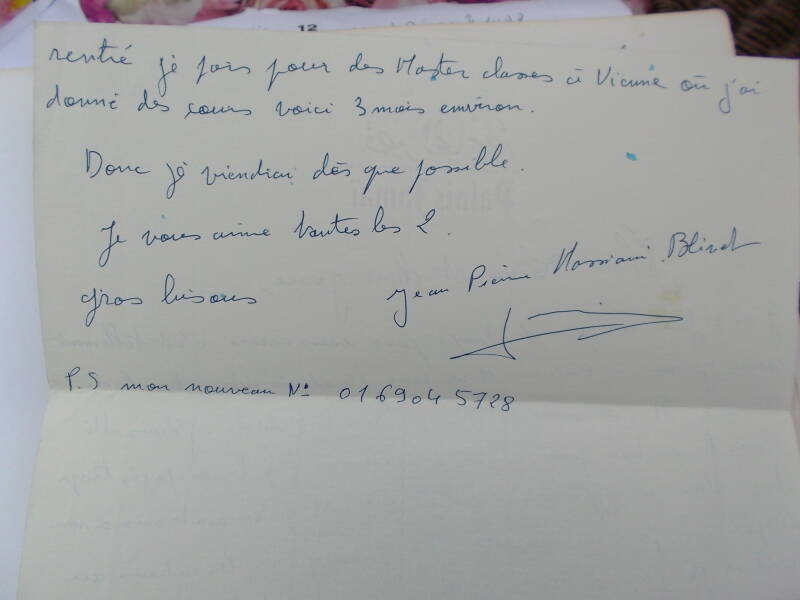 12
rentré je pars pour des Master classes à Vienne où j'ai
donné des cours voici 3 mois environ.
Donc je viendrai dès que possible.
Je vous aime toutes les 2.
gros bisous
Jean Pierre Blivet
P.S mon nouveau N° 01 69 04 5728